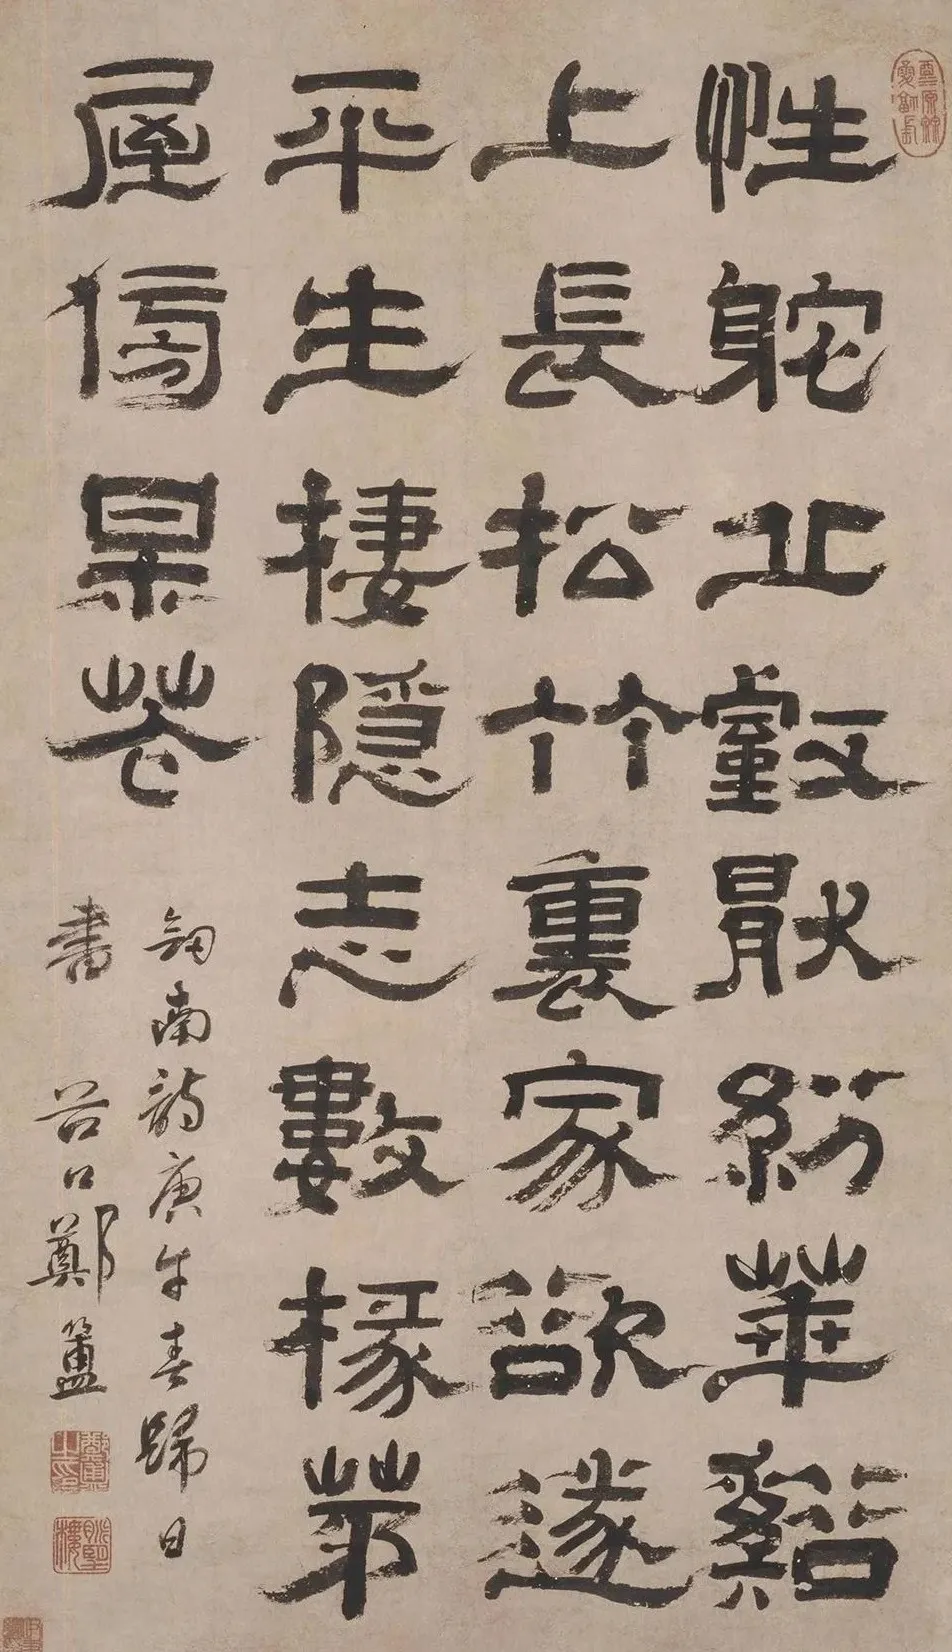 性躭丘壑猒紛華谿
上長松竹裏家欲遂
平生棲隱志數椽茅
屋傍花
劍南詩庚午春歸日
書 谷口鄭簠
鄭簠之印